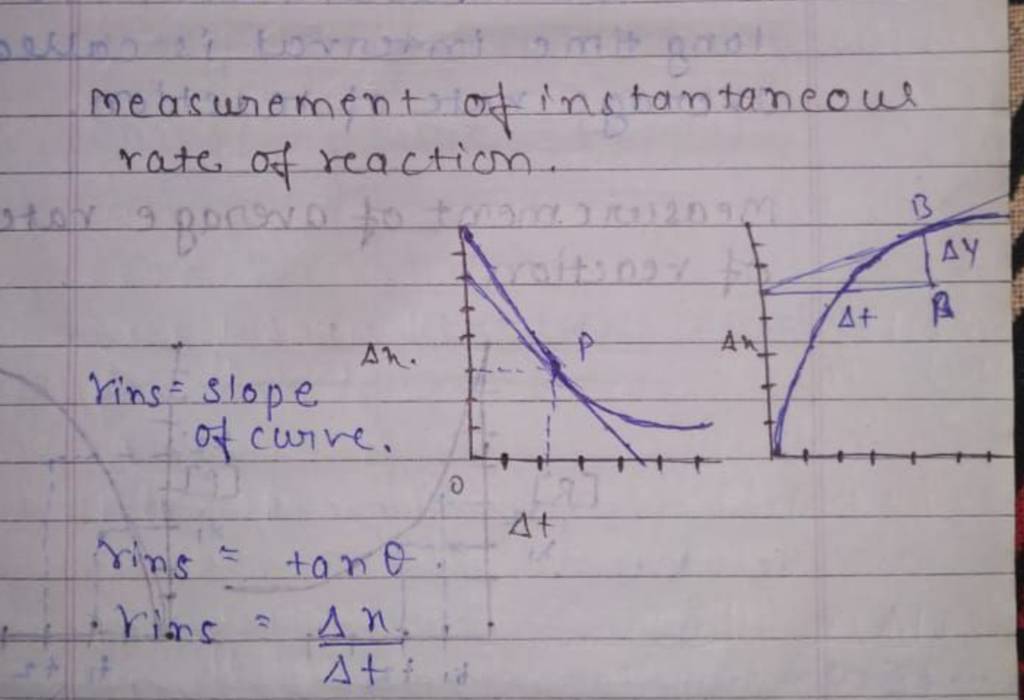 measurement of instantaneous
rate of reaction.
B
ΔY
Δt
Δn.
P
Δn
rins = slope
of curve.
0
Δt
rins = tanθ.
rins = Δn
Δt